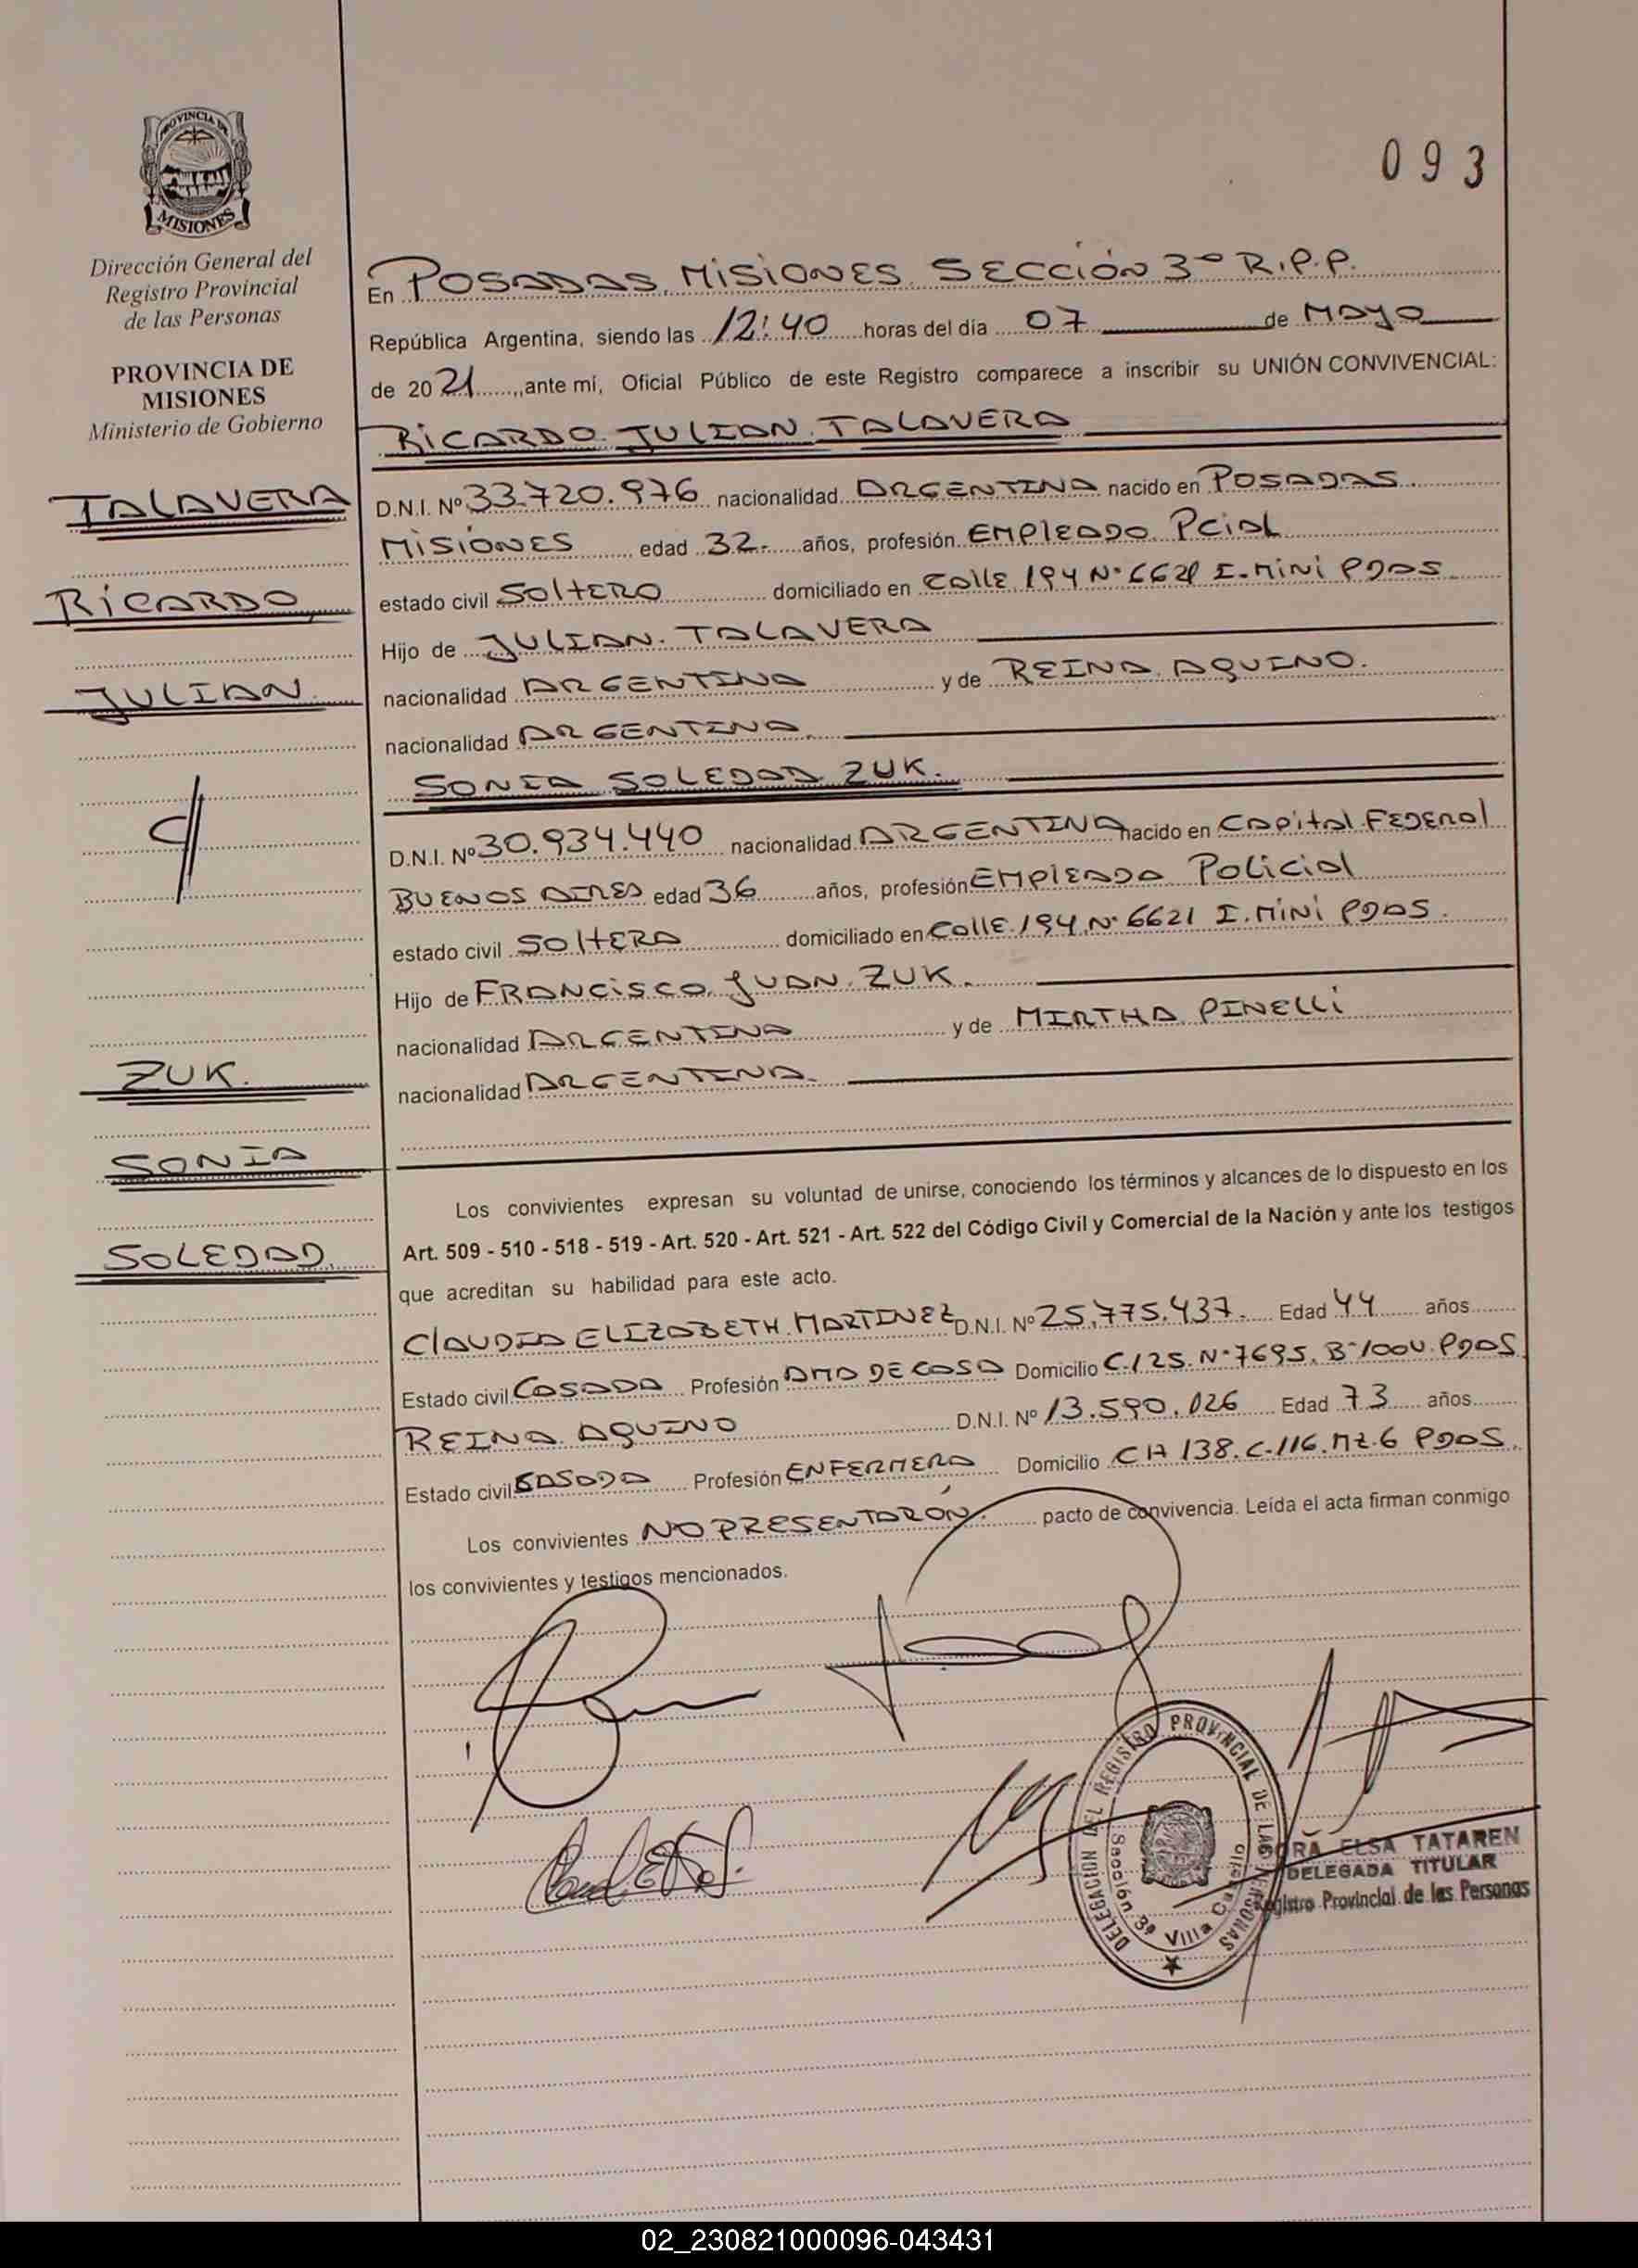 PROVINCIA DE
MISIONES
Dirección General del
Registro Provincial
de las Personas
PROVINCIA DE
MISIONES
Ministerio de Gobierno
TALAVERA
RICARDO
JULIAN
C/
ZUK.
SONIA
SOLEDAD
093
En POSADAS, MISIONES, SECCIÓN 3° R.P.P.
República Argentina, siendo las 12:40 horas del día 07 de MAYO
de 2021, ante mí, Oficial Público de este Registro comparece a inscribir su UNIÓN CONVIVENCIAL:
RICARDO JULIAN TALAVERA
D.N.I. Nº 33.720.976 nacionalidad ARGENTINA nacido en POSADAS
MISIONES edad 32.- años, profesión EMPLEADO PCIAL
estado civil SOLTERO domiciliado en CALLE 194 N° 6621 I. MINI PDAS
Hijo de JULIAN TALAVERA
nacionalidad ARGENTINA y de REINA AQUINO.
nacionalidad ARGENTINA.
SONIA SOLEDAD ZUK.
D.N.I. Nº 30.934.440 nacionalidad ARGENTINA nacido en CAPITAL FEDERAL
BUENOS AIRES edad 36 años, profesión EMPLEADA POLICIAL
estado civil SOLTERA domiciliado en CALLE 194 N° 6621 I. MINI PDAS.
Hijo de FRANCISCO JUAN ZUK.
nacionalidad ARGENTINA y de MIRTHA PINELLI
nacionalidad ARGENTINA.
Los convivientes expresan su voluntad de unirse, conociendo los términos y alcances de lo dispuesto en los
Art. 509 - 510 - 518 - 519 - Art. 520 - Art. 521 - Art. 522 del Código Civil y Comercial de la Nación y ante los testigos
que acreditan su habilidad para este acto.
CLAUDIA ELIZABETH MARTINEZ D.N.I. Nº 25.775.437. Edad 44 años
Estado civil CASADA Profesión AMA DE CASA Domicilio C.125. N° 7695. B° 100V. PDAS
REINA AQUINO D.N.I. Nº 13.590.026 Edad 73 años
Estado civil CASADA Profesión ENFERMERA Domicilio CH 138. C. 116. MZ. 6 PDAS.
Los convivientes NO PRESENTARÓN. pacto de convivencia. Leída el acta firman conmigo
los convivientes y testigos mencionados.
DELEGACION DEL REGISTRO PROVINCIAL DE LAS PERSONAS
Sección 3ª Villa
ELSA TATAREN
DELEGADA TITULAR
Registro Provincial de las Personas
02_230821000096-043431